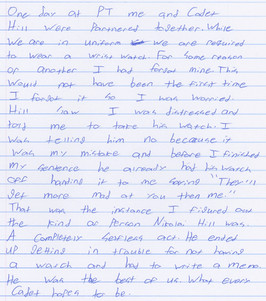 One day at PT me and Cadet
Hill were partnered together. While
we are in uniform we are required
to wear a wrist watch. For some reason
or another I had forgot mine. This
would not have been the first time
I forgot it so I was worried.
Hill saw I was distressed and
told me to take his watch. I
was telling him no because it
was my mistake and before I finished
my sentence he already had his watch
off handing it to me saying "They'll
get more mad at you then me."
That was the instance I figured out
the kind of person Nikolai Hill was.
A completely selfless act. He ended
up getting in trouble for not having
a watch and had to write a memo.
He was the best of us. What every
Cadet hopes to be.